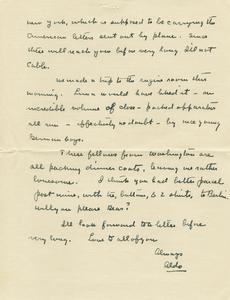 New York, which is supposed to be carrying the
American letters sent out by plane. Since
this will reach you before very long I'll not
cable.
We made a trip to the engine room this
morning. Lina would have liked it - an
incredible volume of close-packed apparatus
all run - effectively no doubt - by nice young
German boys.
These fellows from Washington are
all packing dinner coats, leaving me rather
lonesome. I think you had better parcel
post mine, with tie, buttons, & 2 shirts, to Berlin.
Will you please Dear?
I'll look forward to a letter before
very long. Love to all of you
Always
Aldo